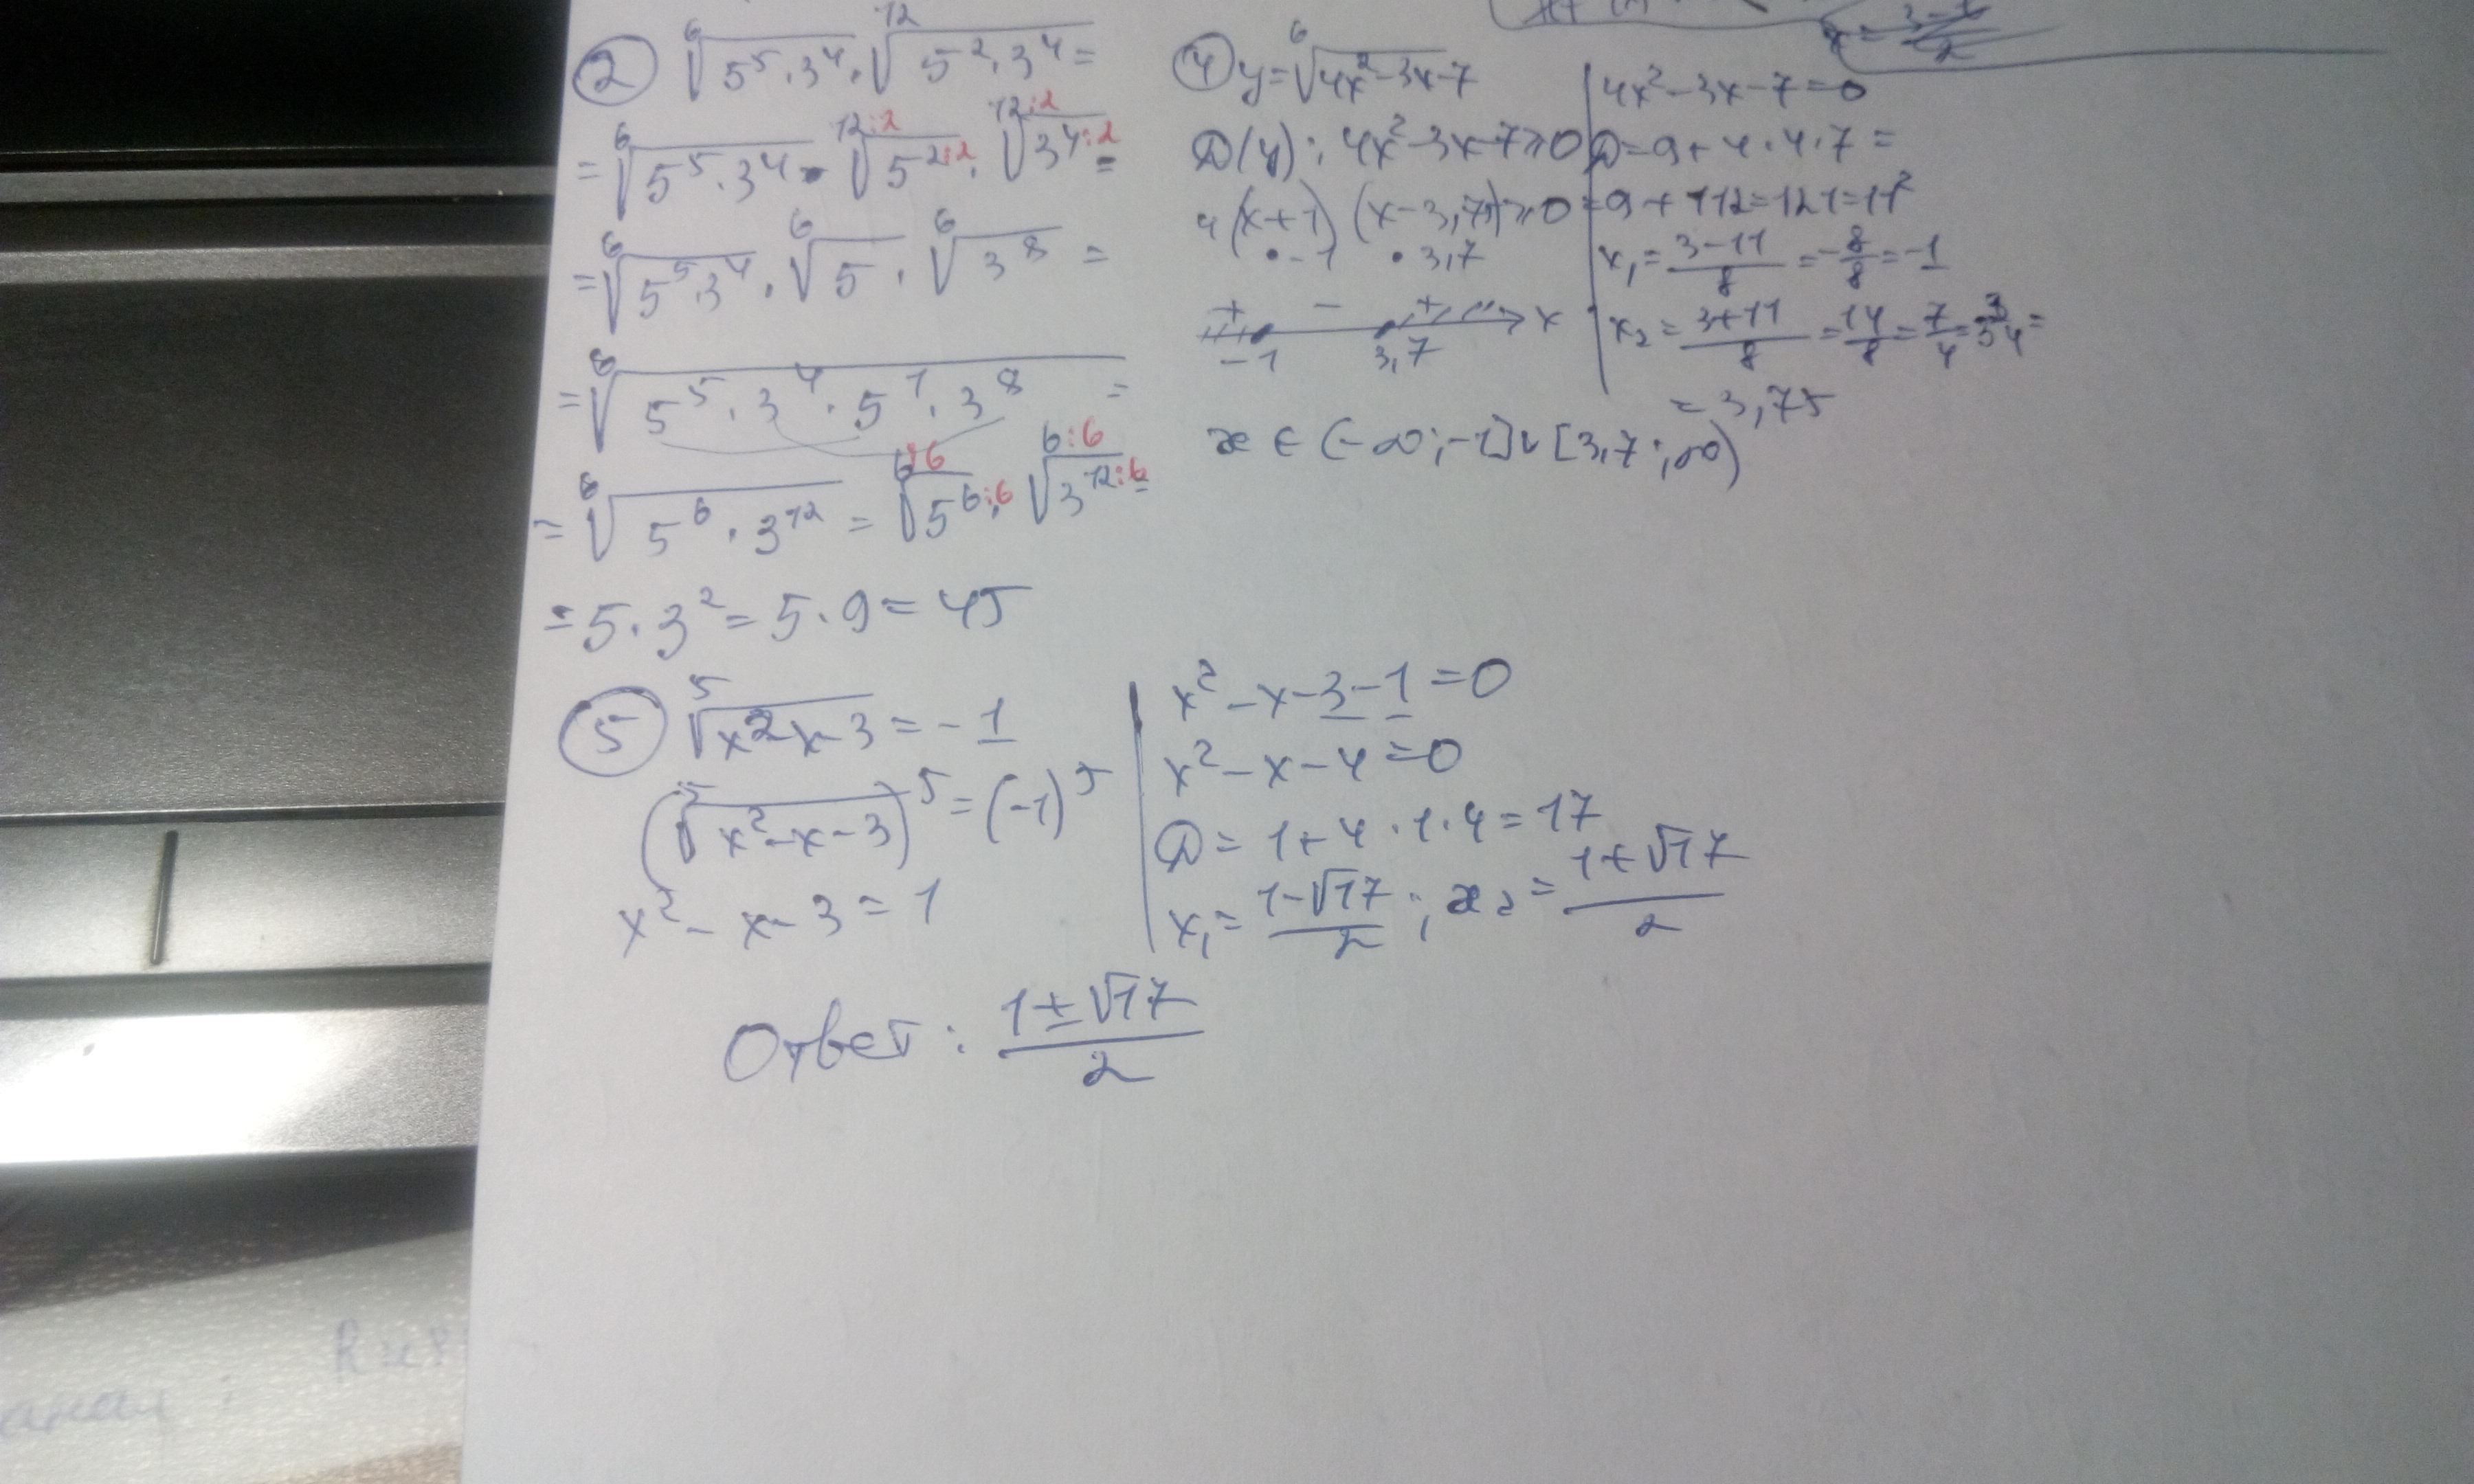 ② ⁶√(5⁵·3⁴) · ¹²√(5²·3⁴) =
= ⁶√(5⁵·3⁴) · ¹²:²√(5²:²) · ¹²:²√(3⁴:²) =
= ⁶√(5⁵·3⁴) · ⁶√5 · ⁶√(3⁸) =
= ⁶√(5⁵·3⁴·5¹·3⁸) =
= ⁶√(5⁶·3¹²) = ⁶:⁶√(5⁶:⁶) · ⁶:⁶√(3¹²:⁶) =
= 5·3² = 5·9 = 45
④ y = ⁶√(4x²-3x-7)
D(y): 4x²-3x-7≥0
4(x+1)(x-3,75)≥0
• -1 • 3,7
+ - + x
-1 3,7
4x²-3x-7=0
D=9+4·4·7=
=9+112=121=11²
x₁ = (3-11)/8 = -8/8 = -1
x₂ = (3+11)/8 = 14/8 = 7/4 = 3 3/4 =
= 3,75
x ∈ (-∞;-1]∪[3,7;∞)
⑤ ⁵√(x²-x-3) = -1
(⁵√(x²-x-3))⁵ = (-1)⁵
x²-x-3=1
x²-x-3-1=0
x²-x-4=0
D=1+4·1·4=17
x₁ = (1-√17)/2; x₂ = (1+√17)/2
Ответ: (1±√17)/2